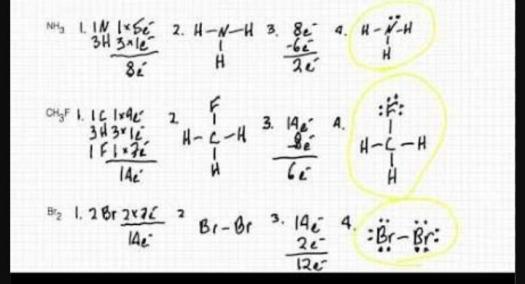 NH₃ 1. 1N 1×5e⁻ 2. H-N-H 3. 8e⁻ 4. H-N̈-H
3H 3×1e⁻ | -6e⁻ |
8e⁻ H 2e⁻ H
CH₃F 1. 1C 1×4e⁻ 2. F 3. 14e⁻ 4. :F̈:
3H 3×1e⁻ H-C-H -8e⁻ H-C-H
1F 1×7e⁻ H 6e⁻ H
14e⁻
Br₂ 1. 2Br 2×7e⁻ 2 Br-Br 3. 14e⁻ 4. :Br-Br:
14e⁻ 2e⁻
12e⁻